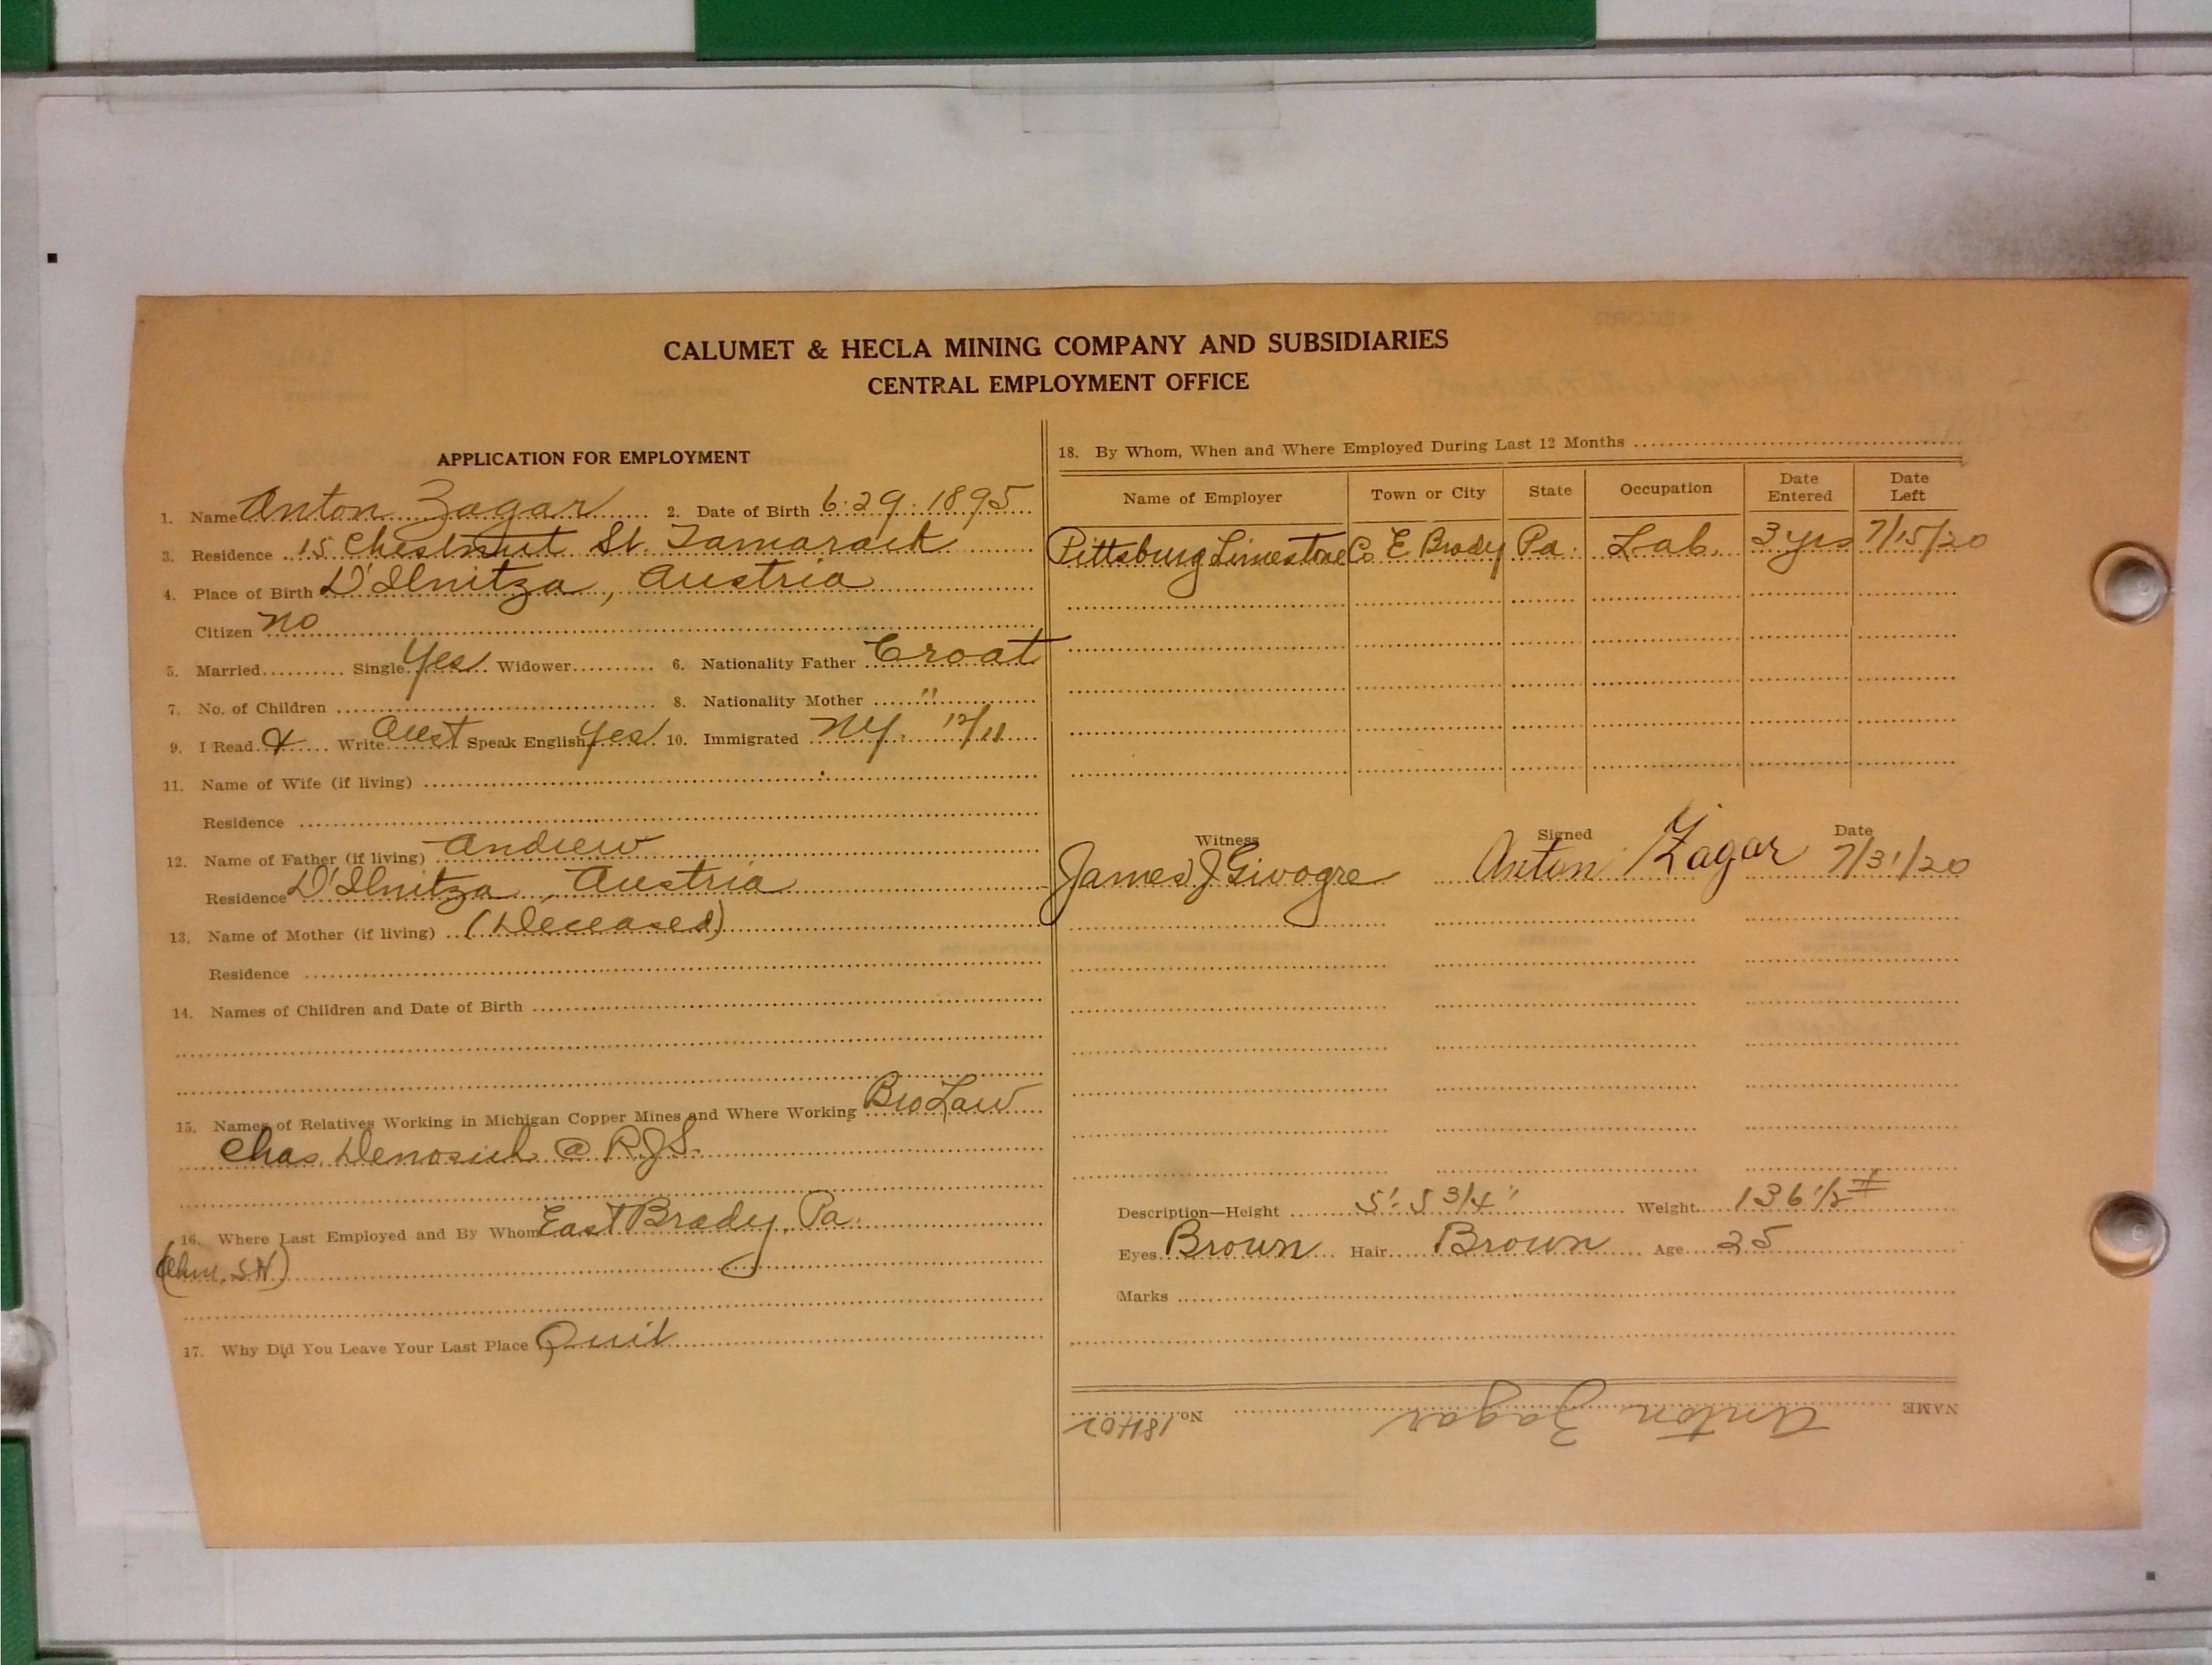 CALUMET & HECLA MINING COMPANY AND SUBSIDIARIES
CENTRAL EMPLOYMENT OFFICE
APPLICATION FOR EMPLOYMENT
1. Name Anton Zagar 2. Date of Birth 6-29-1895
3. Residence 15 Chestnut St. Tamarack
4. Place of Birth D'Ilnitza, Austria
Citizen no
5. Married Single Yes Widower 6. Nationality Father Croat
7. No. of Children 8. Nationality Mother "
9. I Read & Write Aust Speak English Yes 10. Immigrated NY. 12/11
11. Name of Wife (if living)
Residence
12. Name of Father (if living) Andrew
Residence D'Ilnitza, Austria
13. Name of Mother (if living) (Deceased)
Residence
14. Names of Children and Date of Birth
15. Names of Relatives Working in Michigan Copper Mines and Where Working Bro Law
Chas. Denosich @ R.J.S.
16. Where Last Employed and By Whom East Brady, Pa.
17. Why Did You Leave Your Last Place Quit
18. By Whom, When and Where Employed During Last 12 Months
Name of Employer Town or City State Occupation Date Entered Date Left
Pittsburg Limestone Co E. Brady Pa. Lab. 3 yrs 7/15/20
Witness Signed Date
James J Givogre Anton Zagar 7/31/20
Description—Height 5' 5 3/4" Weight 136 1/2 #
Eyes Brown Hair Brown Age 25
Marks
NAME Anton Zagar No. 18402